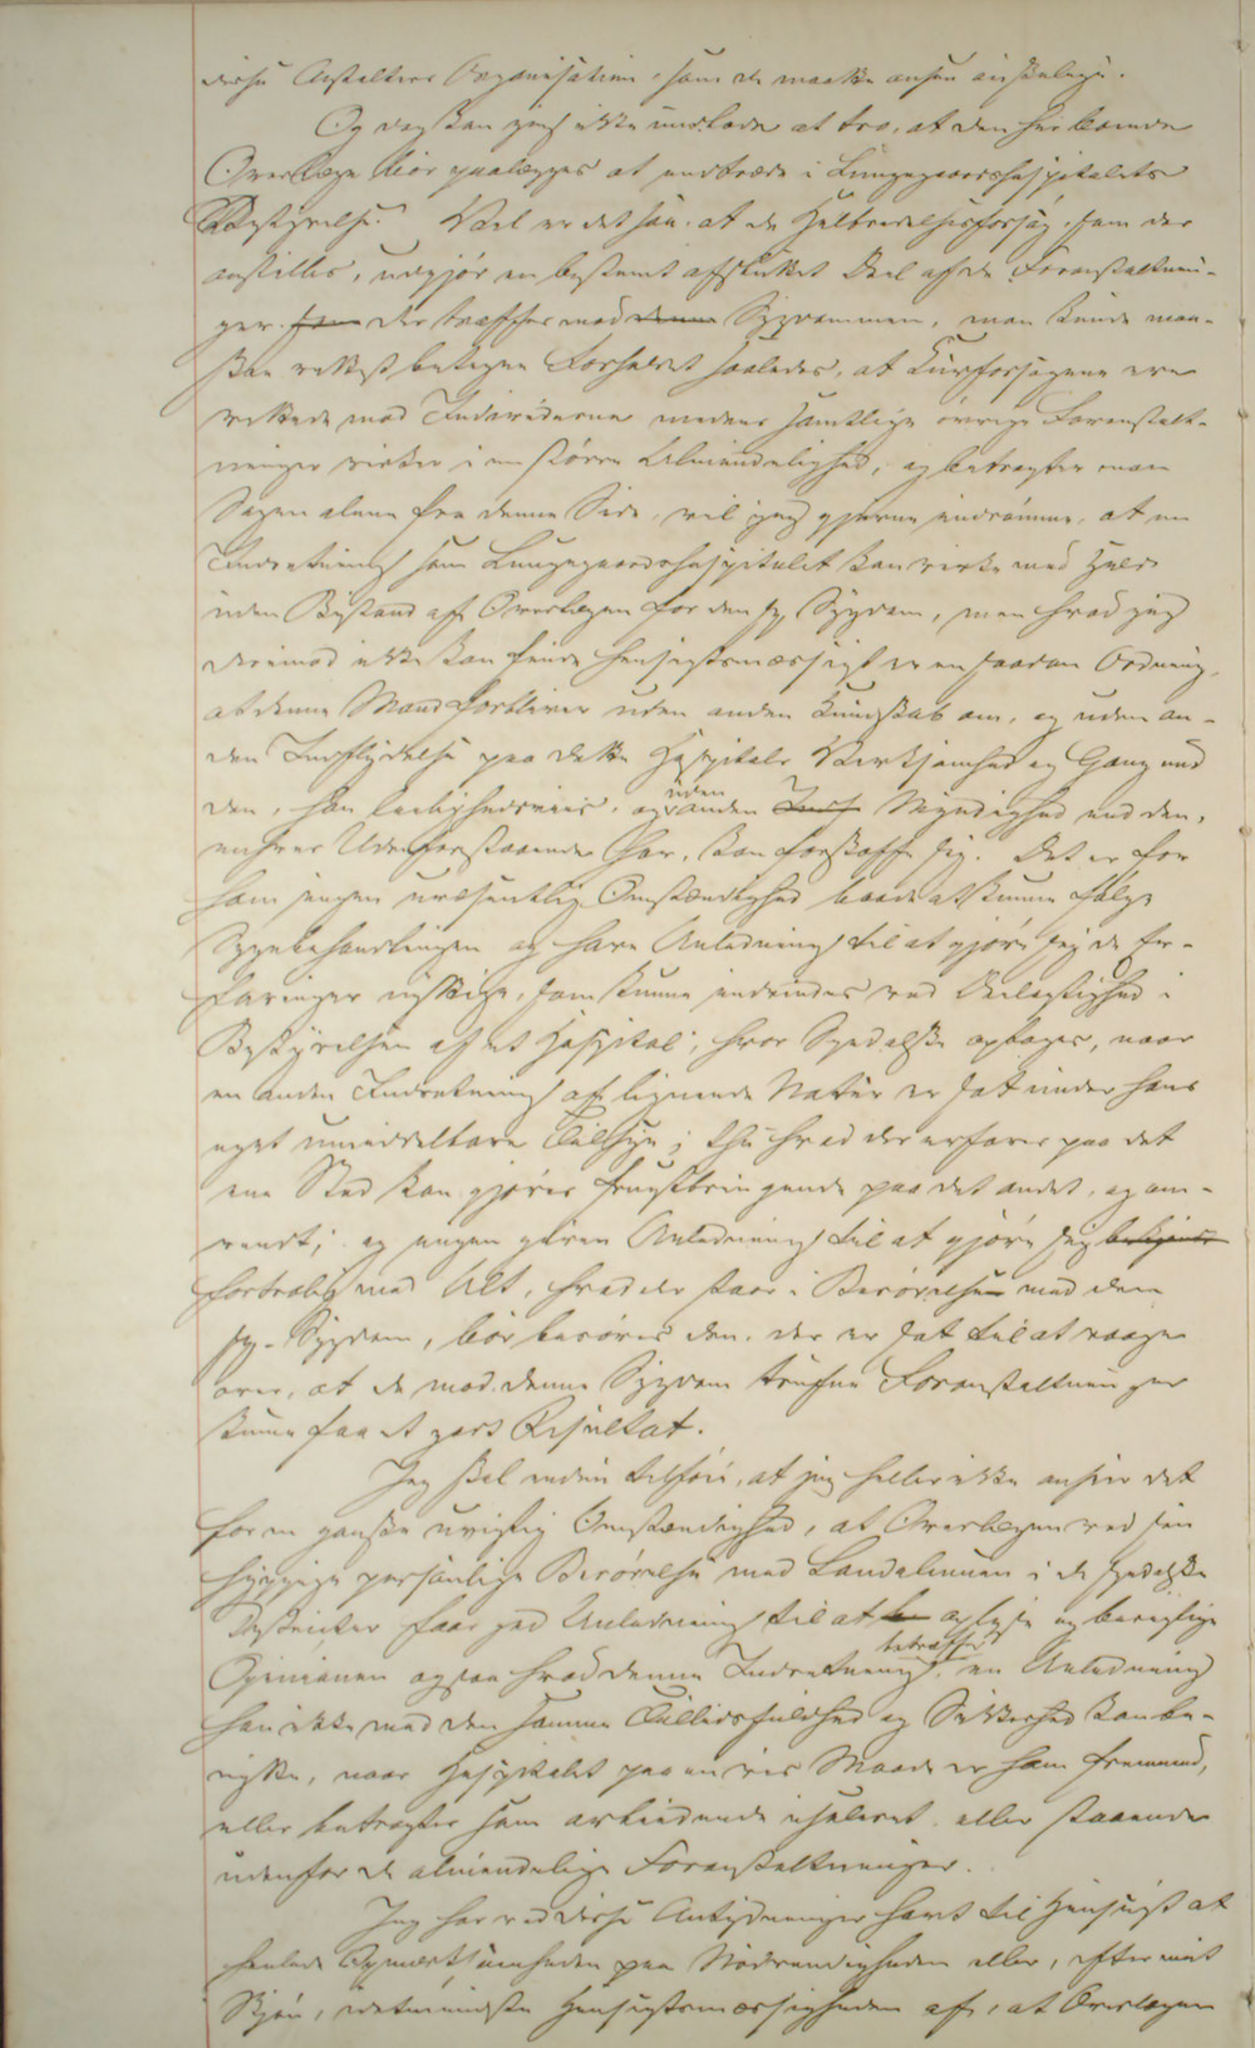 disse Anstalters Organisation, som de maatte ansee ønskelige.
Og dog kan jeg ikke undlade at tro, at den her boende
Overlæge bør paalægges at indtræde i Lungegaardshospitalets
Bestyrelse. Vel er det saa, at de Helbredelsesforsøg, som der
anstilles, udgjør en bestemt afsluttet Deel af de Foranstaltnin-
ger som der træffes mod denne Sygdommen, man kunde maa-
skee rettest betegne Forholdet saaledes, at Kurforsøgene ere
rettede mod Individerne medens samtlige øvrige Foranstalt-
ninger virker i en større Almindelighed, og betragter man
Sagen alene fra denne Side, vil jeg gjerne indrømme, at en
Indretning som Lungegaardshospitalet kan virke med Held
uden Bistand af Overlægen for den sp. Sygdom, men hvad jeg
derimod ikke kan finde hensigtsmæssigt er en saadan Ordning,
at denne Mand forbliver uden anden Kundskab om, og uden an-
den Indflydelse paa dette Hospitals Virksomhed og Gang end
den, han leilighedsviis, og uden anden Indf Myndighed end den,
enhver Udenforstaaende har, kan forskaffe sig. Det er for
ham ingen uvæsentlig Omstændighed baade at kunne følge
Sygebehandlingen og have Anledning til at gjøre sig de Er-
faringer nyttige, som kunne indvindes ved Deelagtighed i
Bestyrelsen af et Hospital, hvor Spedalske optages, naar
en anden Indretning af lignende Natur er sat under hans
eget umiddelbare Tilsyn; thi hvad der erfares paa det
ene Sted kan gjøres frugtbringende paa det andet, og om-
vendt; og ingen given Anledning til at gjøre sig bekjendt
fortrolig med Alt, hvad der staar i Berørelse med den
sp. Sygdom, bør berøves den, der er sat til at vaage
over, at de mod denne Sygdom trufne Foranstaltninger
kunne faae et godt Resultat.
Jeg skal endnu tilføie, at jeg heller ikke anseer det
for en ganske uvigtig Omstændighed, at Overlægen ved sin
hyppige personlige Berørelse med Landalmuen i de spedalske
Distrikter faar god Anledning til at b oplyse og berigtige
Opinionen ogsaa hvad denne Indretning betræffer, en Anledning
han ikke med den samme Tillidsfuldhed og Sikkerhed kan be-
nytte, naar Hospitalet paa en vis Maade er ham fremmed,
eller betragtes som arbeidende isoleret eller staaende
udenfor de almindelige Foranstaltninger.
Jeg har ved disse Antydninger havt til Hensigt at
henlede Opmærksomheden paa Nødvendigheden eller, efter mit
Skjøn, idetmindste Hensigtsmæssigheden af, at Overlægen